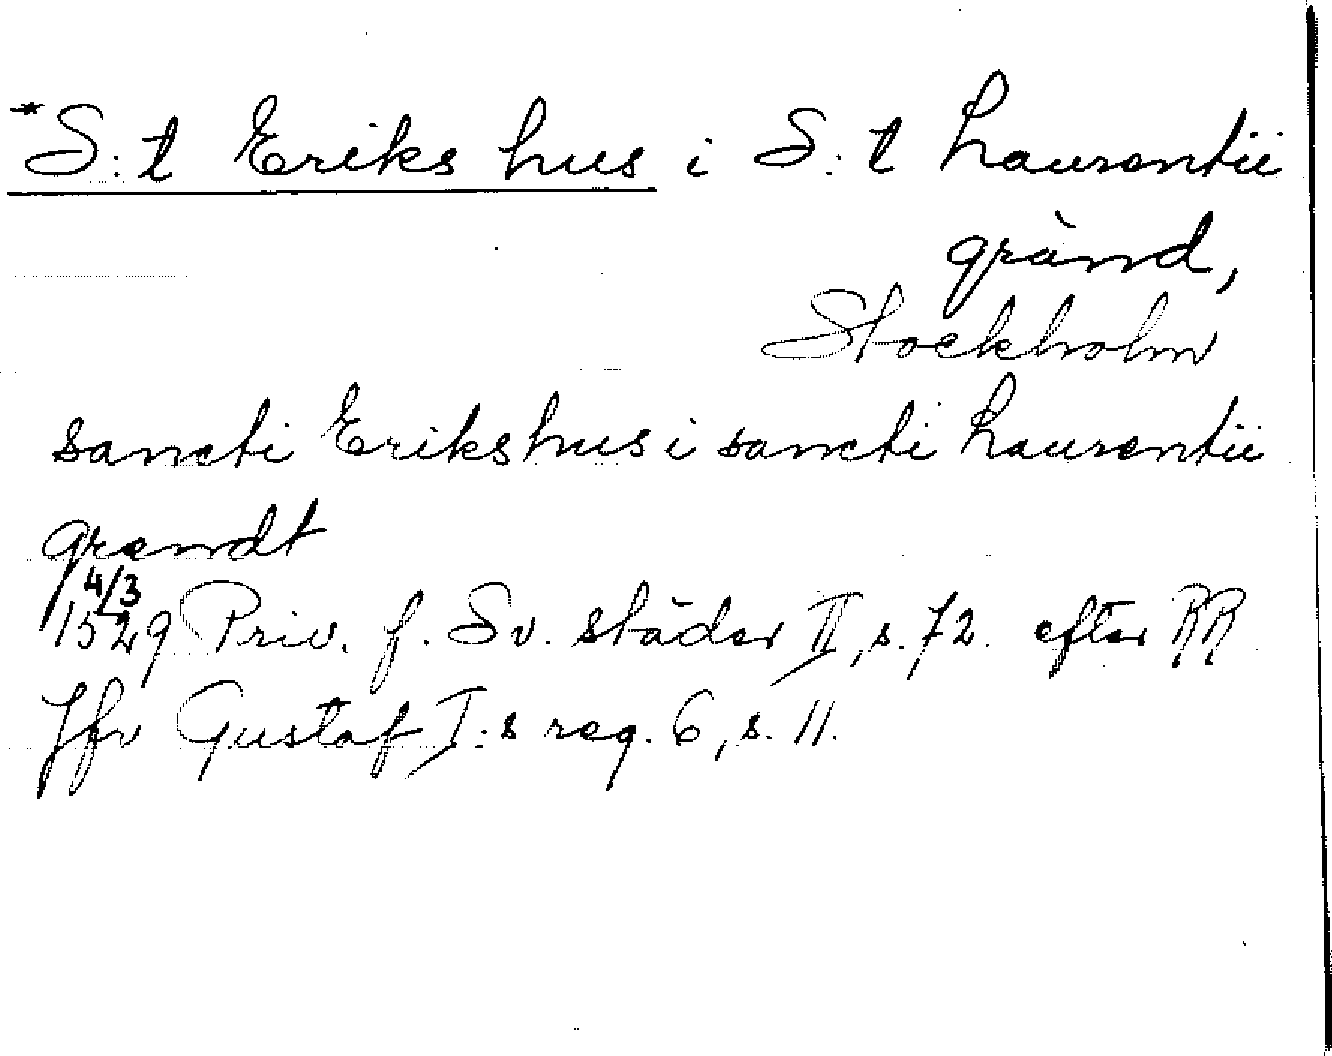 *S:t Eriks hus i S:t Laurentii
gränd,
Stockholm
sancti Erikshus i sancti Laurentii
grendt
4/3
1529 Priv. f. Sv. städer II, s. 72. efter RR
Jfr Gustaf I:s reg. 6, s. 11.